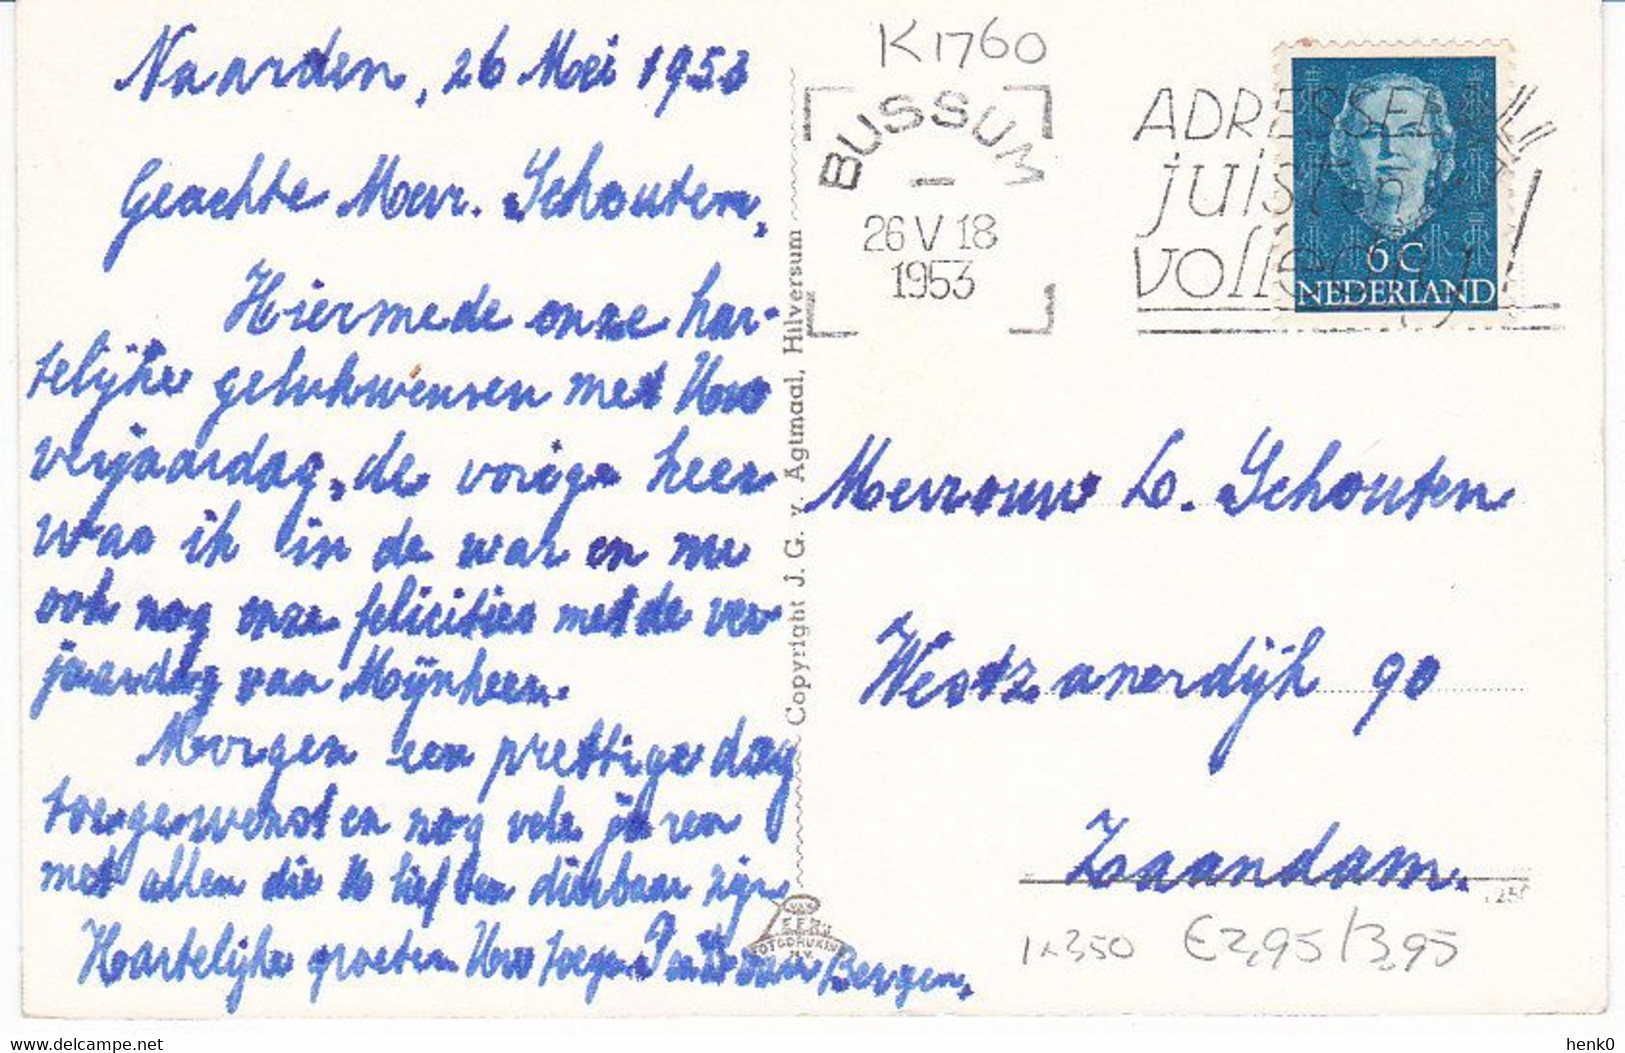 Naarden, 26 Mei 1953
Geachte Mevr. Schouten,
Hiermede onze har-
telijke gelukwensen met Uw
verjaardag, de vorige keer
was ik in de war en nu
ook nog onze felicities met de ver
jaardag van Mijnheer.
Morgen een prettige dag
toegewenst en nog vele jaren
met allen die U lief en dierbaar zijn
Hartelijke groeten Uw toegen. van Bergen.
Copyright J. G. v. Agtmaal, Hilversum
VAN
FOTODRUKIN
N.V.
K1760
BUSSUM
26 V 18
1953
ADRESSEER
juist en
volledig!
6 C
NEDERLAND
Mevrouw L. Schouten
Westzanerdijk 90
Zaandam.
1x350 €2,95/3,95
henk0